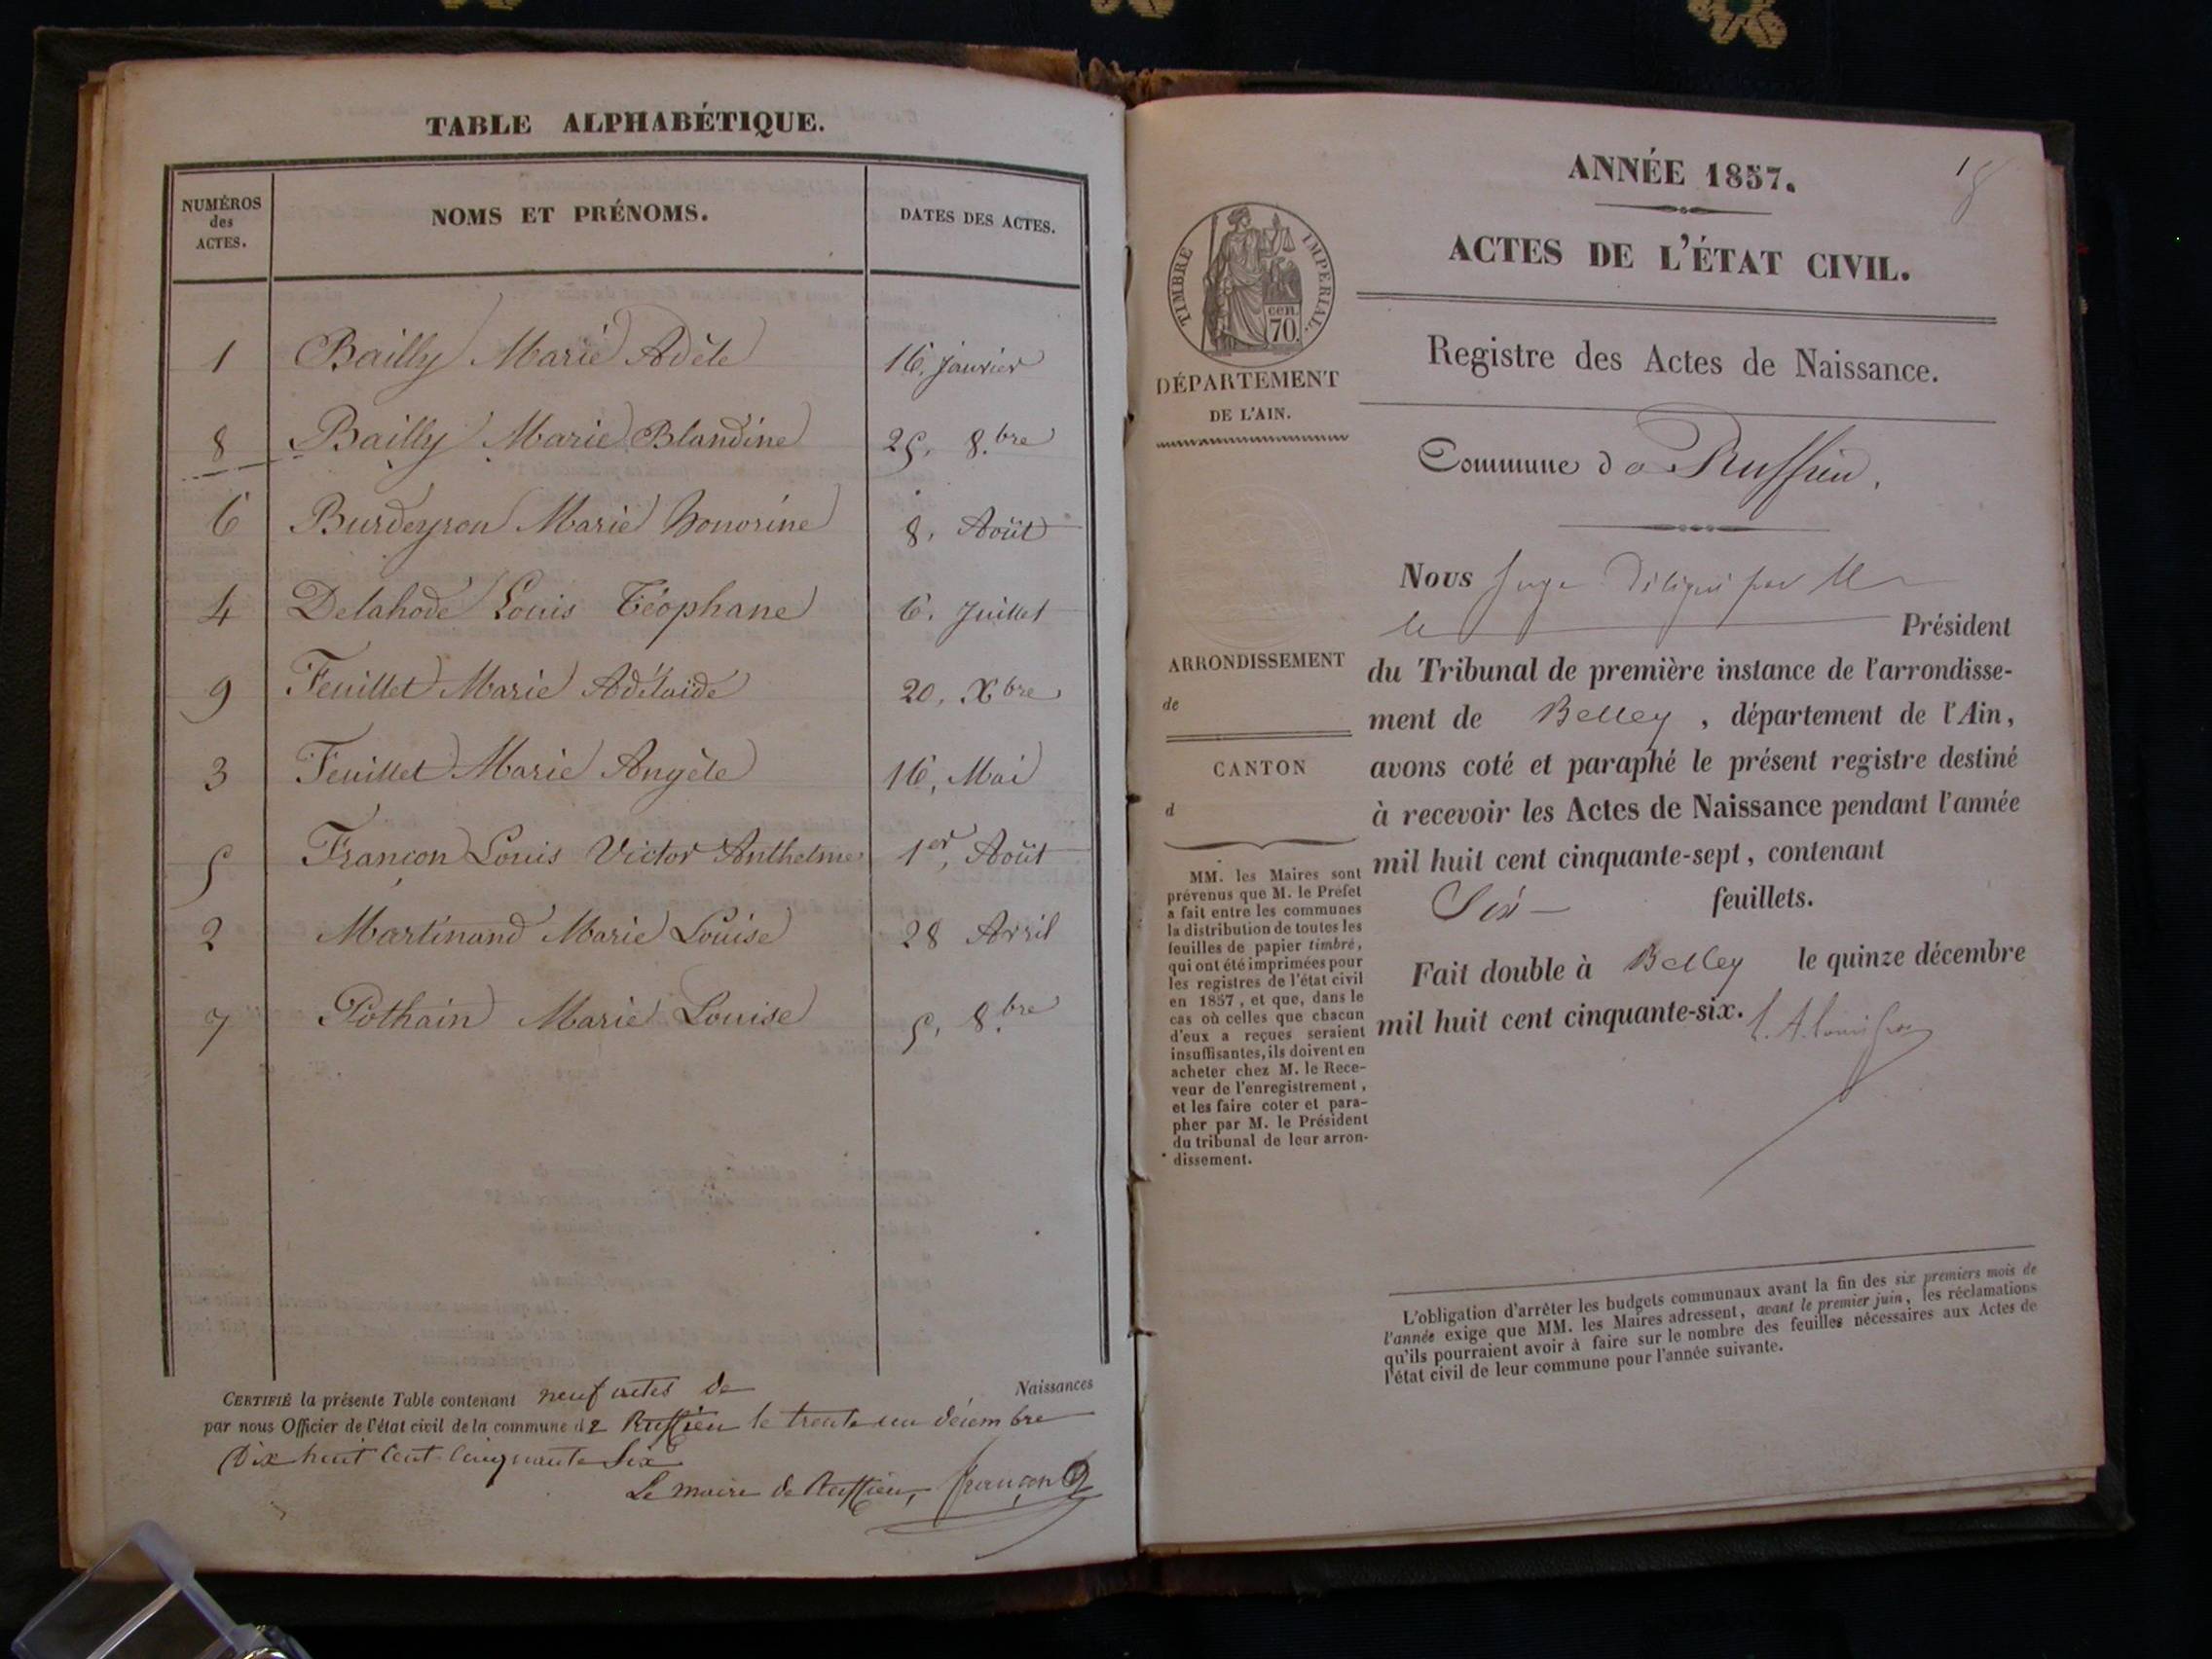 TABLE ALPHABÉTIQUE.
NUMÉROS des ACTES. NOMS ET PRÉNOMS. DATES DES ACTES.
1 Bailly Marie Adèle 16, janvier
8 Bailly Marie Blandine 25, 8.bre
6 Burdeyron Marie honorine 8, Août
4 Delahode Louis Téophane 6, Juillet
9 Feuillet Marie Adélaïde 20, Xbre
3 Feuillet Marie Angèle 16, Mai
5 Françon Louis Victor Anthelme 1er, Août
2 Martinand Marie Louise 28 Avril
7 Pothain Marie Louise 5, 8.bre
CERTIFIÉ la présente Table contenant neuf actes de Naissances
par nous Officier de l'état civil de la commune de Ruffieu le trente un décembre
Dix huit Cent Cinquante Six
Le maire de Ruffieu, françon
ANNÉE 1857.
ACTES DE L'ÉTAT CIVIL.
Registre des Actes de Naissance.
TIMBRE IMPERIAL.
cen. 70.
DÉPARTEMENT
DE L'AIN.
Commune de Ruffieu,
Nous Juge délégué par Mr
le Président
du Tribunal de première instance de l'arrondisse-
ment de Belley, département de l'Ain,
avons coté et paraphé le présent registre destiné
à recevoir les Actes de Naissance pendant l'année
mil huit cent cinquante-sept, contenant
Six feuillets.
Fait double à Belley le quinze décembre
mil huit cent cinquante-six.
ARRONDISSEMENT
de
CANTON
d
MM. les Maires sont
prévenus que M. le Préfet
a fait entre les communes
la distribution de toutes les
feuilles de papier timbré,
qui ont été imprimées pour
les registres de l'état civil
en 1857, et que, dans le
cas où celles que chacun
d'eux a reçues seraient
insuffisantes, ils doivent en
acheter chez M. le Rece-
veur de l'enregistrement,
et les faire coter et para-
pher par M. le Président
du tribunal de leur arron-
dissement.
L'obligation d'arrêter les budgets communaux avant la fin des six premiers mois de
l'année exige que MM. les Maires adressent, avant le premier juin, les réclamations
qu'ils pourraient avoir à faire sur le nombre des feuilles nécessaires aux Actes de
l'état civil de leur commune pour l'année suivante.